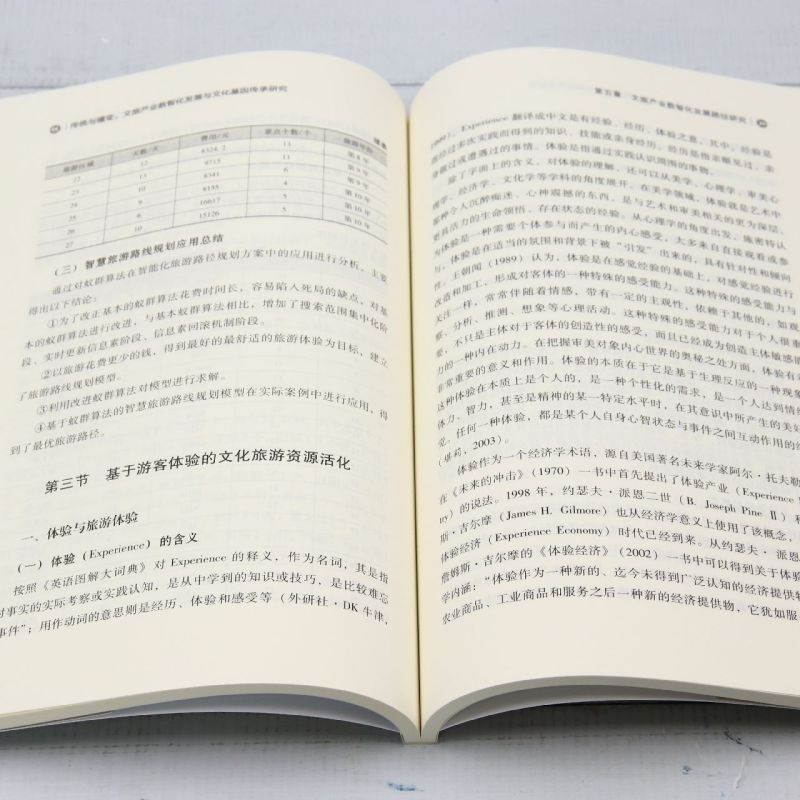 传统与嬗变：文旅产业数智化发展与文化基因传承研究
续表
旅游区域 天数/天 费用/元 景点个数/个 旅游年份
22 12 8324.2 13 第8年
23 13 9715 11 第9年
24 10 8341 6 第9年
25 9 8155 4 第10年
26 9 16617 5 第10年
27 10 15126 5 第10年
（三）智慧旅游路线规划应用总结
通过对蚁群算法在智能化旅游路径规划方案中的应用进行分析，主要
得出以下结论：
①为了改正基本的蚁群算法花费时间长，容易陷入死局的缺点，对基
本的蚁群算法进行改进，与基本蚁群算法相比，增加了搜索范围集中化阶
段、实时更新信息素阶段、信息素回滚机制阶段。
②以旅游花费更少的钱，得到最好的最舒适的旅游体验为目标，建立
了旅游路线规划模型。
③利用改进蚁群算法对模型进行求解。
④基于蚁群算法的智慧旅游路线规划模型在实际案例中进行应用，得
到了最优旅游路径。
第三节 基于游客体验的文化旅游资源活化
一、体验与旅游体验
（一）体验（Experience）的含义
按照《英语图解大词典》对Experience的释义，作为名词，其是指
对事实的实际考察或实践认知，是从中学到的知识或技巧，是比较难忘
事件”；用作动词的意思则是经历、体验和感受等（外研社·DK牛津，
第五章 文旅产业数智化发展路径研究
1989）。Experience翻译成中文是有经验、经历、体验之意，其中，经验是
指经过多次实践而得到的知识、技能或亲身经历；经历是指亲眼见过、亲
身做过或遭遇过的事情。体验是指通过实践认识周围的事物。
除了字面上的含义，对体验的理解，还可以从美学、心理学、审美心
理学、经济学、文化学等学科的角度展开。在美学领域，体验就是艺术中
那种令人沉醉痴迷、心神震撼的东西，是与艺术和审美相关的更为深层、
更具活力的生命领悟、存在状态的经验。从心理学的角度出发，施密特认
为体验是一种需要个体参与而产生的内心感受，大多来自直接观看或参
与，体验是在适当的氛围和背景下被“引发”出来的，具有针对性和倾向
性。王朝闻（1989）认为，体验是在感觉经验的基础上，对感觉经验进行
改造和加工，形成对客体的一种特殊的感受能力。这种特殊的感受能力与
关注一样，常常伴随着情感，带有一定的主观性，依赖于其他的，如观
察、分析、推测、想象等心理活动。这种特殊的感受能力对于个人很重
要，不只是主体对于客体的创造性的感受，而且已经成为创造主体敏感能
力的一种内在动力。在把握审美对象内心世界的奥秘之处方面，体验有着
非常重要的意义和作用。体验的本质在于它是基于生理反应的一种现象
这种体验在本质上是个人的，是一种个性化的需求，是一个人达到情绪
体力、智力，甚至是精神的某一特定水平时，在其意识中所产生的美好
觉。任何一种体验，都是某个人自身心智状态与事件之间互动作用的结
莉，2003）。
体验作为一个经济学术语，源自美国著名未来学家阿尔·托夫勒
在《未来的冲击》（1970）一书中首先提出了体验产业（Experience
ry）的说法。1998年，约瑟夫·派恩二世（B. Joseph Pine Ⅱ）和
斯·吉尔摩（James H. Gilmore）也从经济学意义上使用了该概念，
体验经济（Experience Economy）时代已经到来。从约瑟夫·派恩
詹姆斯·吉尔摩的《体验经济》（2002）一书中可以得到关于体验
学内涵：“体验作为一种新的、迄今未得到广泛认知的经济提供物
农业商品、工业商品和服务之后一种新的经济提供物，它犹如服